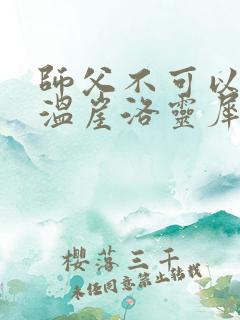 師父不可以
溫崖洛靈犀
櫻落三千
未經同意禁止轉載